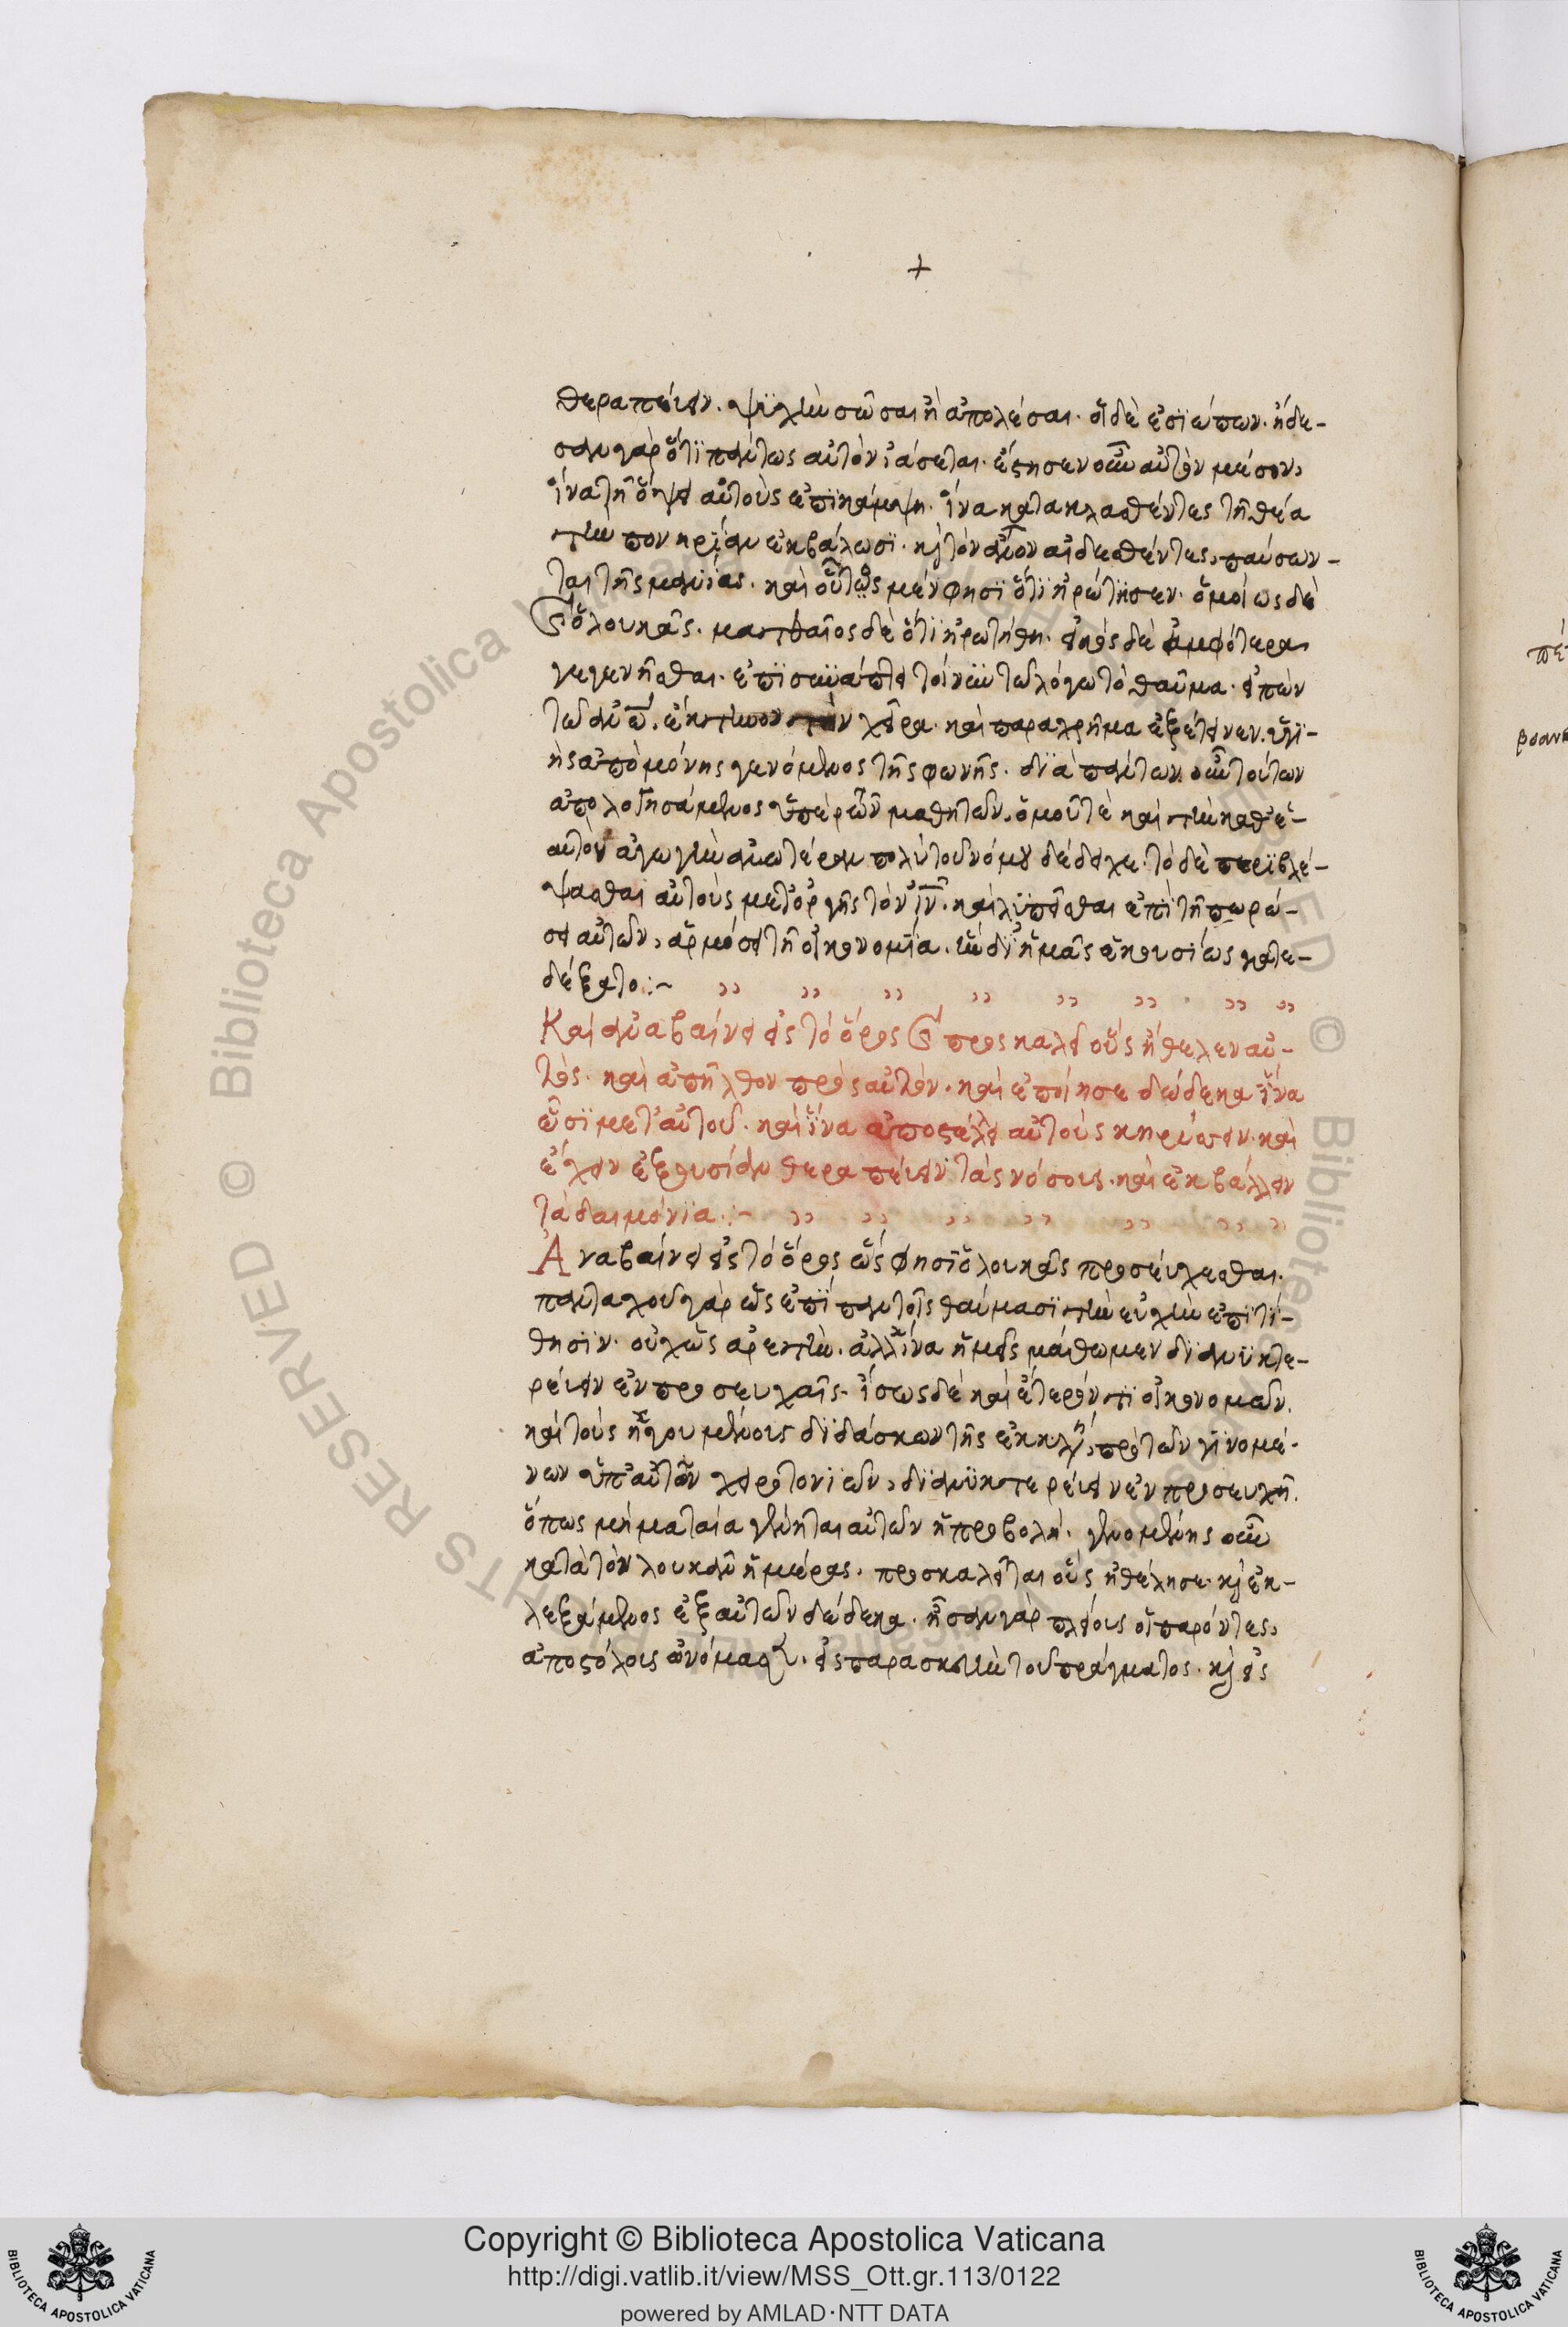 +
θεραπεύειν. ψυχὴν σῶσαι ἢ ἀπολέσαι. οἱ δὲ ἐσιώπων. ἤδει-
σαν γὰρ ὅτι πάντως αὐτὸν ἰάσεται. ἔστησεν οὖν αὐτὸν μέσον,
ἵνα τῇ ὄψει αὐτοὺς ἐπικάμψῃ. ἵνα κατακλασθέντες τῇ θέᾳ
τὴν πονηρίαν ἐκβάλωσι. καὶ τὸν ἄνον αἰδεσθέντες, παύσων-
ται τῆς μανίας. καὶ οὗτος μέν φησι ὅτι ἠρώτησεν. ὁμοίως δὲ
καὶ ὁ λουκᾶς. ματθαῖος δὲ ὅτι ἠρωτήθη. εἰκὸς δὲ ἀμφότερα
γεγενῆσθαι. ἐπισυνάπτει τοίνυν τῷ λόγῳ τὸ θαῦμα. εἰπὼν
τῷ ἀνω. ἔκτεινον τὴν χεῖρα. καὶ παραχρῆμα ἐξέτεινεν. ὑγι-
ὴς ἀπὸ μόνης γενόμενος τῆς φωνῆς. διὰ πάντων οὖν τούτων
ἀπολογησάμενος ὑπὲρ τῶν μαθητῶν, ὁμοῦ τὲ καὶ τὴν καθ' ἑ-
αυτὸν ἀγωγὴν ἀνωτέραν πολὺ τοῦ νόμου δέδειχε. τὸ δὲ περιβλέ-
ψασθαι αὐτοὺς μετ' ὀργῆς τὸν ἰν. καὶ λυπεῖσθαι ἐπὶ τῇ πωρώ-
σει αὐτῶν, ἁρμόσει τῇ οἰκονομίᾳ. ἣν δι' ἡμᾶς ἑκουσίως κατε-
δέξατο :~ ,, ,, ,, ,, ,, ,, ,, ,,
Καὶ ἀναβαίνει εἰς τὸ ὄρος καὶ προσκαλεῖ οὓς ἤθελεν αὐ-
τός. καὶ ἀπῆλθον πρὸς αὐτόν. καὶ ἐποίησε δώδεκα ἵνα
ὦσι μετ' αὐτοῦ. καὶ ἵνα ἀποστέλλει αὐτοὺς κηρύσσειν. καὶ
ἔχειν ἐξουσίαν θεραπεύειν τὰς νόσους. καὶ ἐκβάλλειν
τὰ δαιμόνια :~ ,, ,, ,, ,, ,, ,, ,,
Ἀναβαίνει εἰς τὸ ὄρος ὥς φησι ὁ λουκᾶς προσεύχεσθαι.
πανταχοῦ γὰρ ὡς ἐπὶ παντοῖς θαύμασι τὴν εὐχὴν ἐπιτί-
θησιν. οὐχ ὡς ἀρετὴν. ἀλλ' ἵνα ἡμεῖς μάθωμεν διανυκτε-
ρεύειν ἐν προσευχαῖς. ἴσως δὲ καὶ ἕτερόν τι οἰκονομῶν.
καὶ τοὺς ἡγουμένους διδάσκων τῆς ἐκκλη, πρὸ τῶν γινομέ-
νων ὑπ' αὐτῶν χειροτονιῶν, διανυκτερεύειν ἐν προσευχῇ.
ὅπως μὴ ματαία γένηται αὐτῶν ἡ προβολή. γενομένης οὖν
κατὰ τὸν λουκᾶν ἡμέρας. προσκαλεῖται οὓς ἠθέλησε. καὶ ἐκ-
λεξάμενος ἐξ αὐτῶν δώδεκα. ἦσαν γὰρ πλείους οἱ παρόντες,
ἀποστόλους ὠνόμασε. εἰς παρασκευὴν τοῦ πράγματος. καὶ εἰς
Copyright © Biblioteca Apostolica Vaticana
http://digi.vatlib.it/view/MSS_Ott.gr.113/0122
powered by AMLAD·NTT DATA